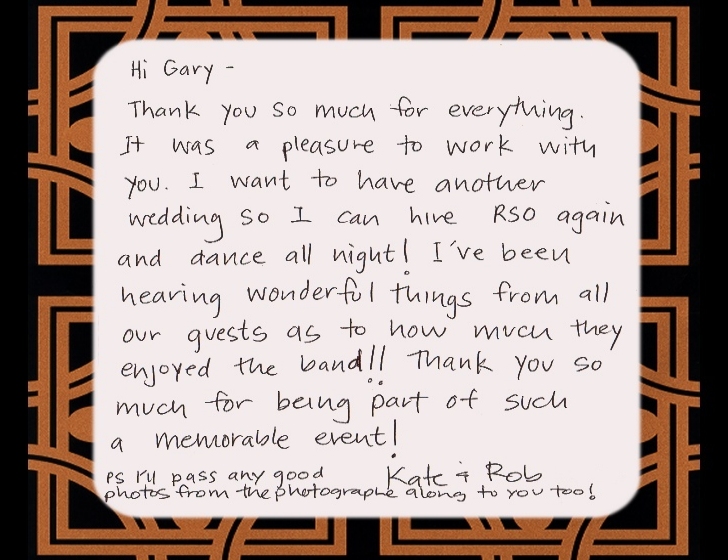 Hi Gary -
Thank you so much for everything.
It was a pleasure to work with
you. I want to have another
wedding so I can hire RSO again
and dance all night! I've been
hearing wonderful things from all
our guests as to how much they
enjoyed the band!! Thank you so
much for being part of such
a memorable event!
Kate & Rob
PS I'll pass any good
photos from the photographe along to you too!